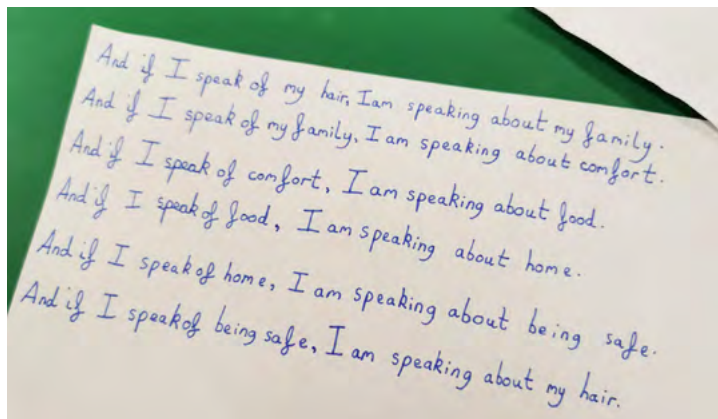 And if I speak of my hair, I am speaking about my family.
And if I speak of my family, I am speaking about comfort.
And if I speak of comfort, I am speaking about food.
And if I speak of food, I am speaking about home.
And if I speak of home, I am speaking about being safe.
And if I speak of being safe, I am speaking about my hair.